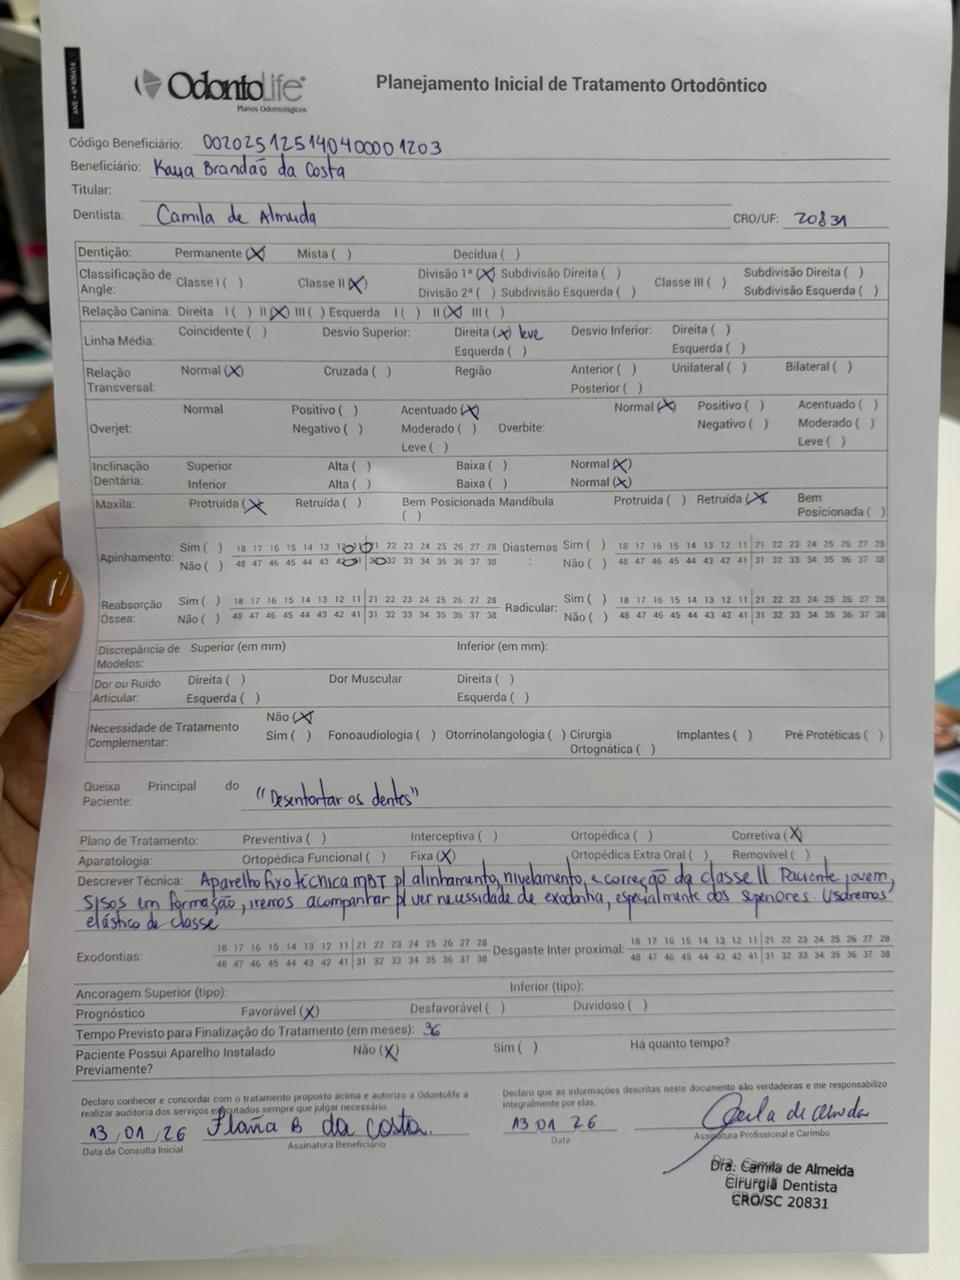 ANS - nº 406414
OdontoLife
Planos Odontológicos
Planejamento Inicial de Tratamento Ortodôntico
Código Beneficiário: 00202512514040001203
Beneficiário: Kaua Brandão da Costa
Titular:
Dentista: Camila de Almeida CRO/UF: 20831
Dentição: Permanente (X) Mista ( ) Decídua ( )
Classificação de Angle: Classe I ( ) Classe II (X) Divisão 1ª (X) Subdivisão Direita ( ) Classe III ( ) Subdivisão Direita ( )
Divisão 2ª ( ) Subdivisão Esquerda ( ) Subdivisão Esquerda ( )
Relação Canina: Direita I ( ) II (X) III ( ) Esquerda I ( ) II (X) III ( )
Linha Média: Coincidente ( ) Desvio Superior: Direita (X) leve Desvio Inferior: Direita ( )
Esquerda ( ) Esquerda ( )
Relação Transversal: Normal (X) Cruzada ( ) Região Anterior ( ) Unilateral ( ) Bilateral ( )
Posterior ( )
Overjet: Normal Positivo ( ) Acentuado (X) Overbite: Normal (X) Positivo ( ) Acentuado ( )
Negativo ( ) Moderado ( ) Negativo ( ) Moderado ( )
Leve ( ) Leve ( )
Inclinação Dentária: Superior Alta ( ) Baixa ( ) Normal (X)
Inferior Alta ( ) Baixa ( ) Normal (X)
Maxila: Protruída (X) Retruída ( ) Bem Posicionada ( ) Mandíbula Protruída ( ) Retruída (X) Bem Posicionada ( )
Apinhamento: Sim ( ) 18 17 16 15 14 13 12 11 21 22 23 24 25 26 27 28 Diastemas : Sim ( ) 18 17 16 15 14 13 12 11 21 22 23 24 25 26 27 28
Não ( ) 48 47 46 45 44 43 42 41 31 32 33 34 35 36 37 38 Não ( ) 48 47 46 45 44 43 42 41 31 32 33 34 35 36 37 38
Reabsorção Óssea: Sim ( ) 18 17 16 15 14 13 12 11 21 22 23 24 25 26 27 28 Radicular: Sim ( ) 18 17 16 15 14 13 12 11 21 22 23 24 25 26 27 28
Não ( ) 48 47 46 45 44 43 42 41 31 32 33 34 35 36 37 38 Não ( ) 48 47 46 45 44 43 42 41 31 32 33 34 35 36 37 38
Discrepância de Modelos: Superior (em mm) Inferior (em mm):
Dor ou Ruído Articular: Direita ( ) Dor Muscular Direita ( )
Esquerda ( ) Esquerda ( )
Necessidade de Tratamento Complementar: Não (X)
Sim ( ) Fonoaudiologia ( ) Otorrinolangologia ( ) Cirurgia Ortognática ( ) Implantes ( ) Pré Protéticas ( )
Queixa Principal do Paciente: "Desentortar os dentes"
Plano de Tratamento: Preventiva ( ) Interceptiva ( ) Ortopédica ( ) Corretiva (X)
Aparatologia: Ortopédica Funcional ( ) Fixa (X) Ortopédica Extra Oral ( ) Removível ( )
Descrever Técnica: Aparelho fixo técnica MBT p/ alinhamento, nivelamento, e correção da classe II. Paciente jovem,
sisos em formação, iremos acompanhar p/ ver necessidade de exodontia, especialmente dos superiores. Usaremos
elástico de classe
Exodontias: 18 17 16 15 14 13 12 11 21 22 23 24 25 26 27 28 Desgaste Inter proximal: 18 17 16 15 14 13 12 11 21 22 23 24 25 26 27 28
48 47 46 45 44 43 42 41 31 32 33 34 35 36 37 38 48 47 46 45 44 43 42 41 31 32 33 34 35 36 37 38
Ancoragem Superior (tipo): Inferior (tipo):
Prognóstico Favorável (X) Desfavorável ( ) Duvidoso ( )
Tempo Previsto para Finalização do Tratamento (em meses): 36
Paciente Possui Aparelho Instalado Previamente? Não (X) Sim ( ) Há quanto tempo?
Declaro conhecer e concordar com o tratamento proposto acima e autorizo a Odontolife a
realizar auditoria dos serviços executados sempre que julgar necessário.
Declaro que as informações descritas neste documento são verdadeiras e me responsabilizo
integralmente por elas.
13/01/26 Flavia B da costa. 13 01 26 Camila de Almeida
Data da Consulta Inicial Assinatura Beneficiário Data Assinatura Profissional e Carimbo
Dra. Camila de Almeida
Cirurgiã Dentista
CRO/SC 20831